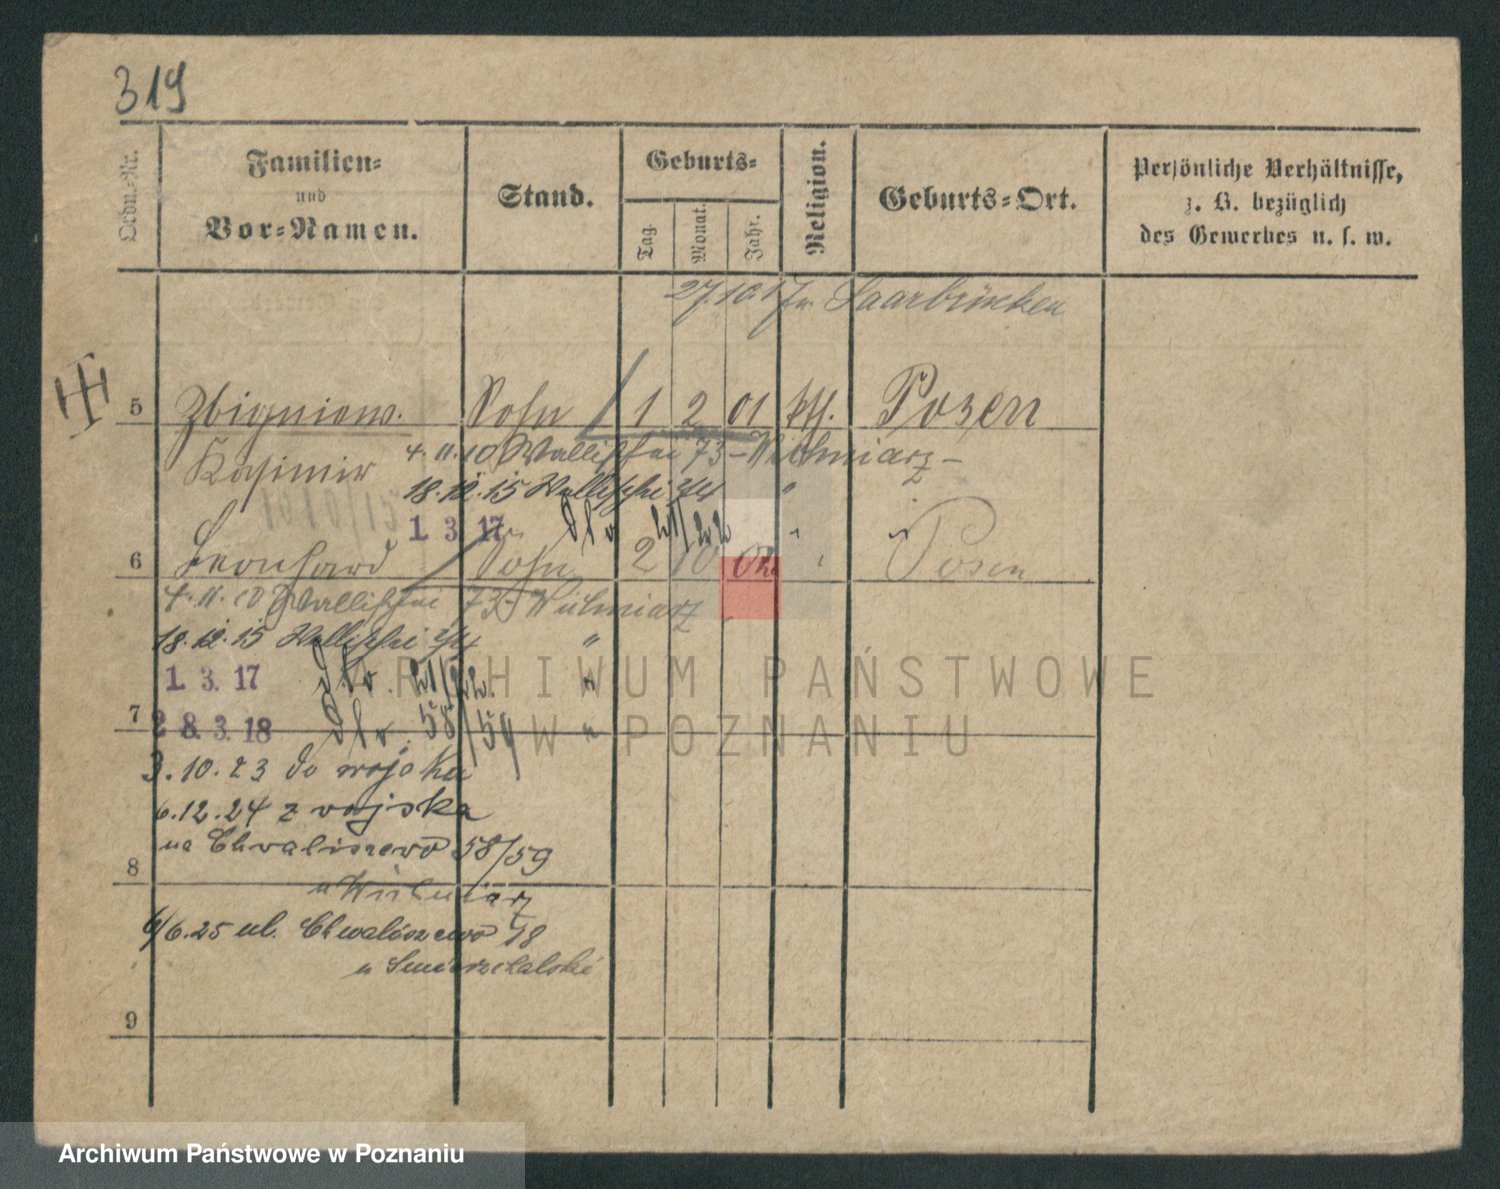 319
Ordn.-Nr.
Familien-
und
Vor-Namen.
Stand.
Geburts-
Tag.
Monat.
Jahr.
Religion.
Geburts-Ort.
Persönliche Verhältnisse,
z. B. bezüglich
des Gewerbes u. s. w.
27.10.17 Saarbrücken
5 Zbigniew. Sohn 1 2 01 kth. Posen
Kasimir 4.11.10 Wallischei 73 -
18.12.15 Wallischei "
1. 3. 17 dto 21/22 "
6 Leonhard Sohn 2 10 Posen
4.11.10 Wallischei 73-
18.12.15 Wallischei "
1. 3. 17 dto. 21/22. "
7 28.3.18 dto. 58/59 "
3.10.23 do wojska
6.12.24 z wojska
na Chwaliszewo 58/59
8
6/6.25 ul. Chwaliszewo
9
ARCHIWUM PAŃSTWOWE
W POZNANIU
Archiwum Państwowe w Poznaniu